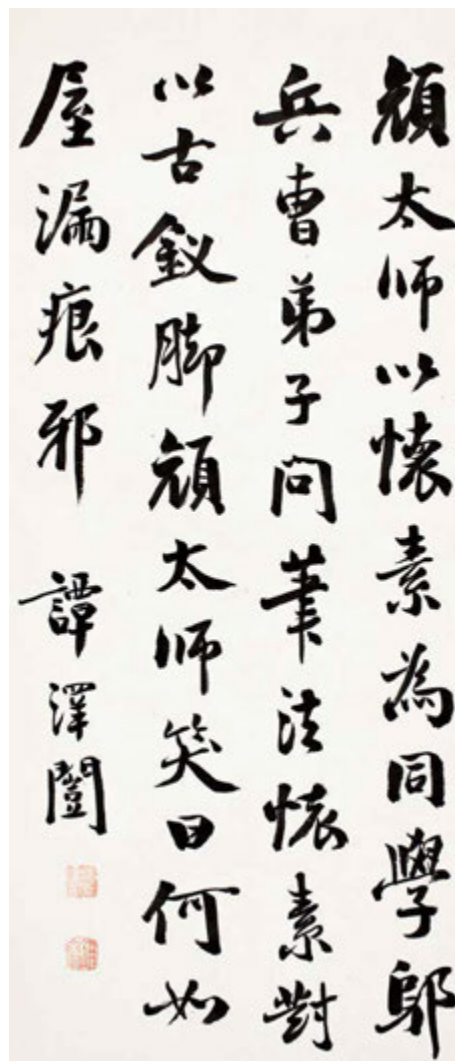 顔太師以懷素為同學鄔
兵曹弟子問筆法懷素對
以古釵脚顔太師笑曰何如
屋漏痕邪 譚澤闓